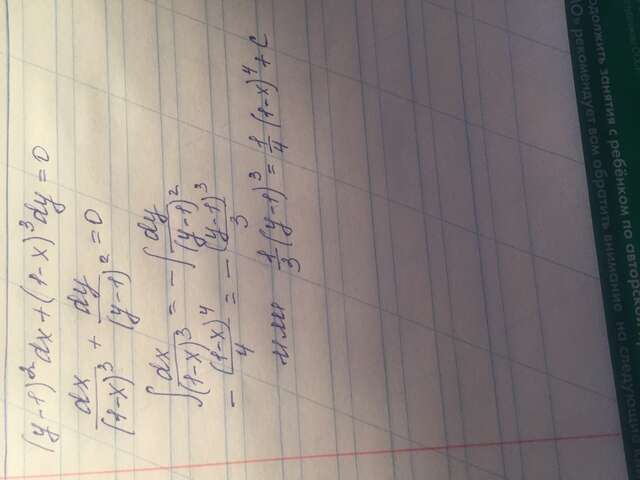 (y-1)²dx+(1-x)³dy=0
dx/(1-x)³ + dy/(y-1)² =0
∫dx/(1-x)³ = -∫dy/(y-1)²
-(1-x)⁴/4 = -(y-1)³/3
или 1/3(y-1)³ = 1/4(1-x)⁴+C
одолжить занятия с ребёнком по авторской
АО» рекомендует вам обратить внимание на следующ